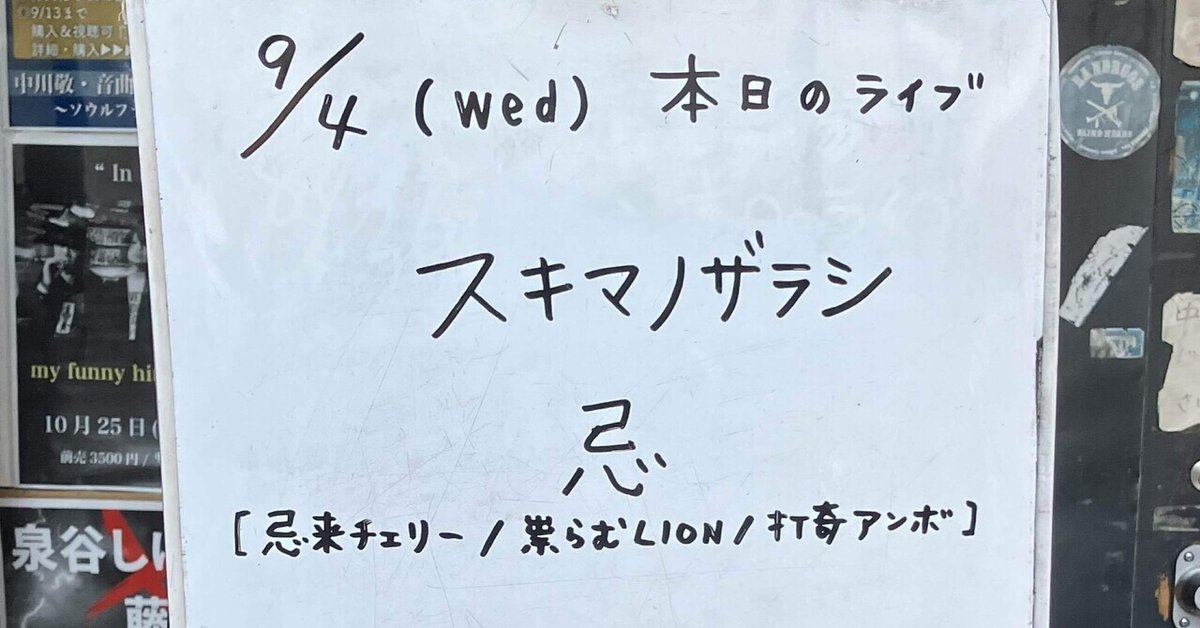 9/13まで
購入&視聴可
詳細・購入▶▶▶
中川敬・音曲
～ソウルフ
"In
my funny hi
10月25日(
前売3500円/
泉谷しげ
藤
9/4 (Wed) 本日のライブ
スキマノザラシ
忌
[忌来チェリー/祟らむLION/打奇アンボ]